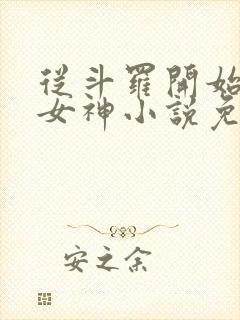 從斗羅開始
女神小說免
安之余